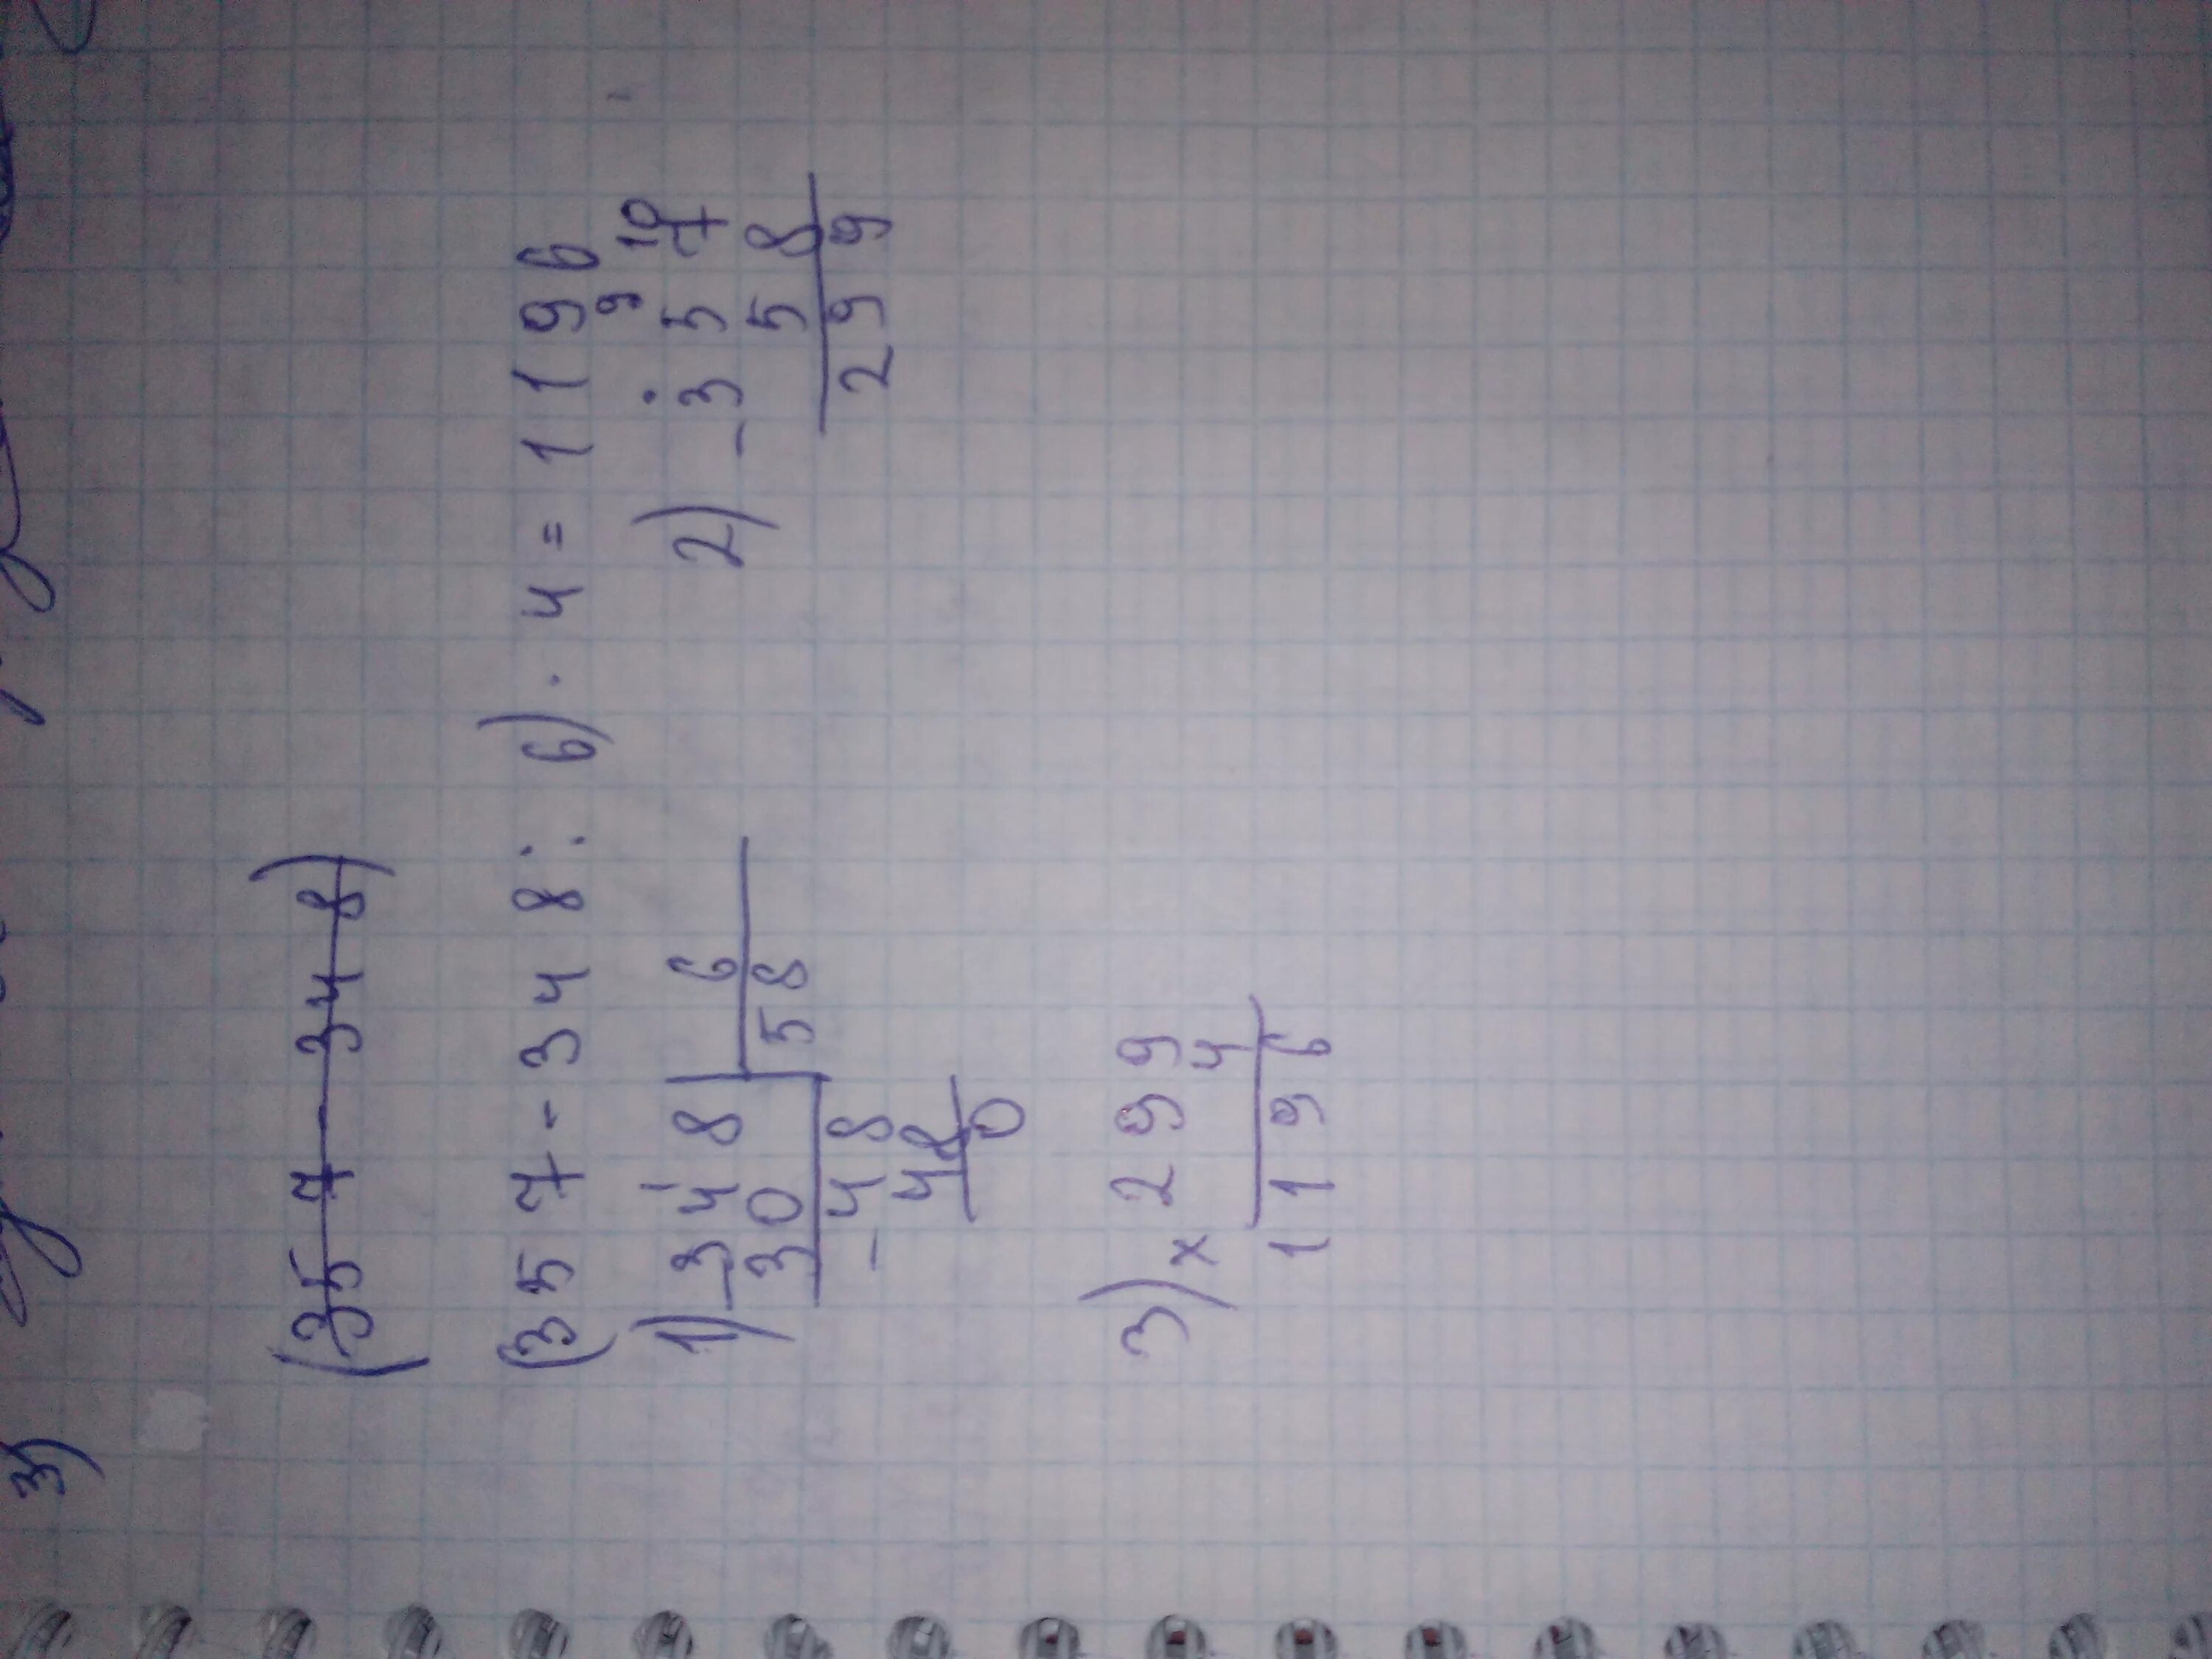 3)
(357 - 348)
(357 - 348 : 6) · 4 = 1196
1) 348 6
30 58
- 48
48
0
2) 9 10
- 357
58
299
3) × 299
4
1196